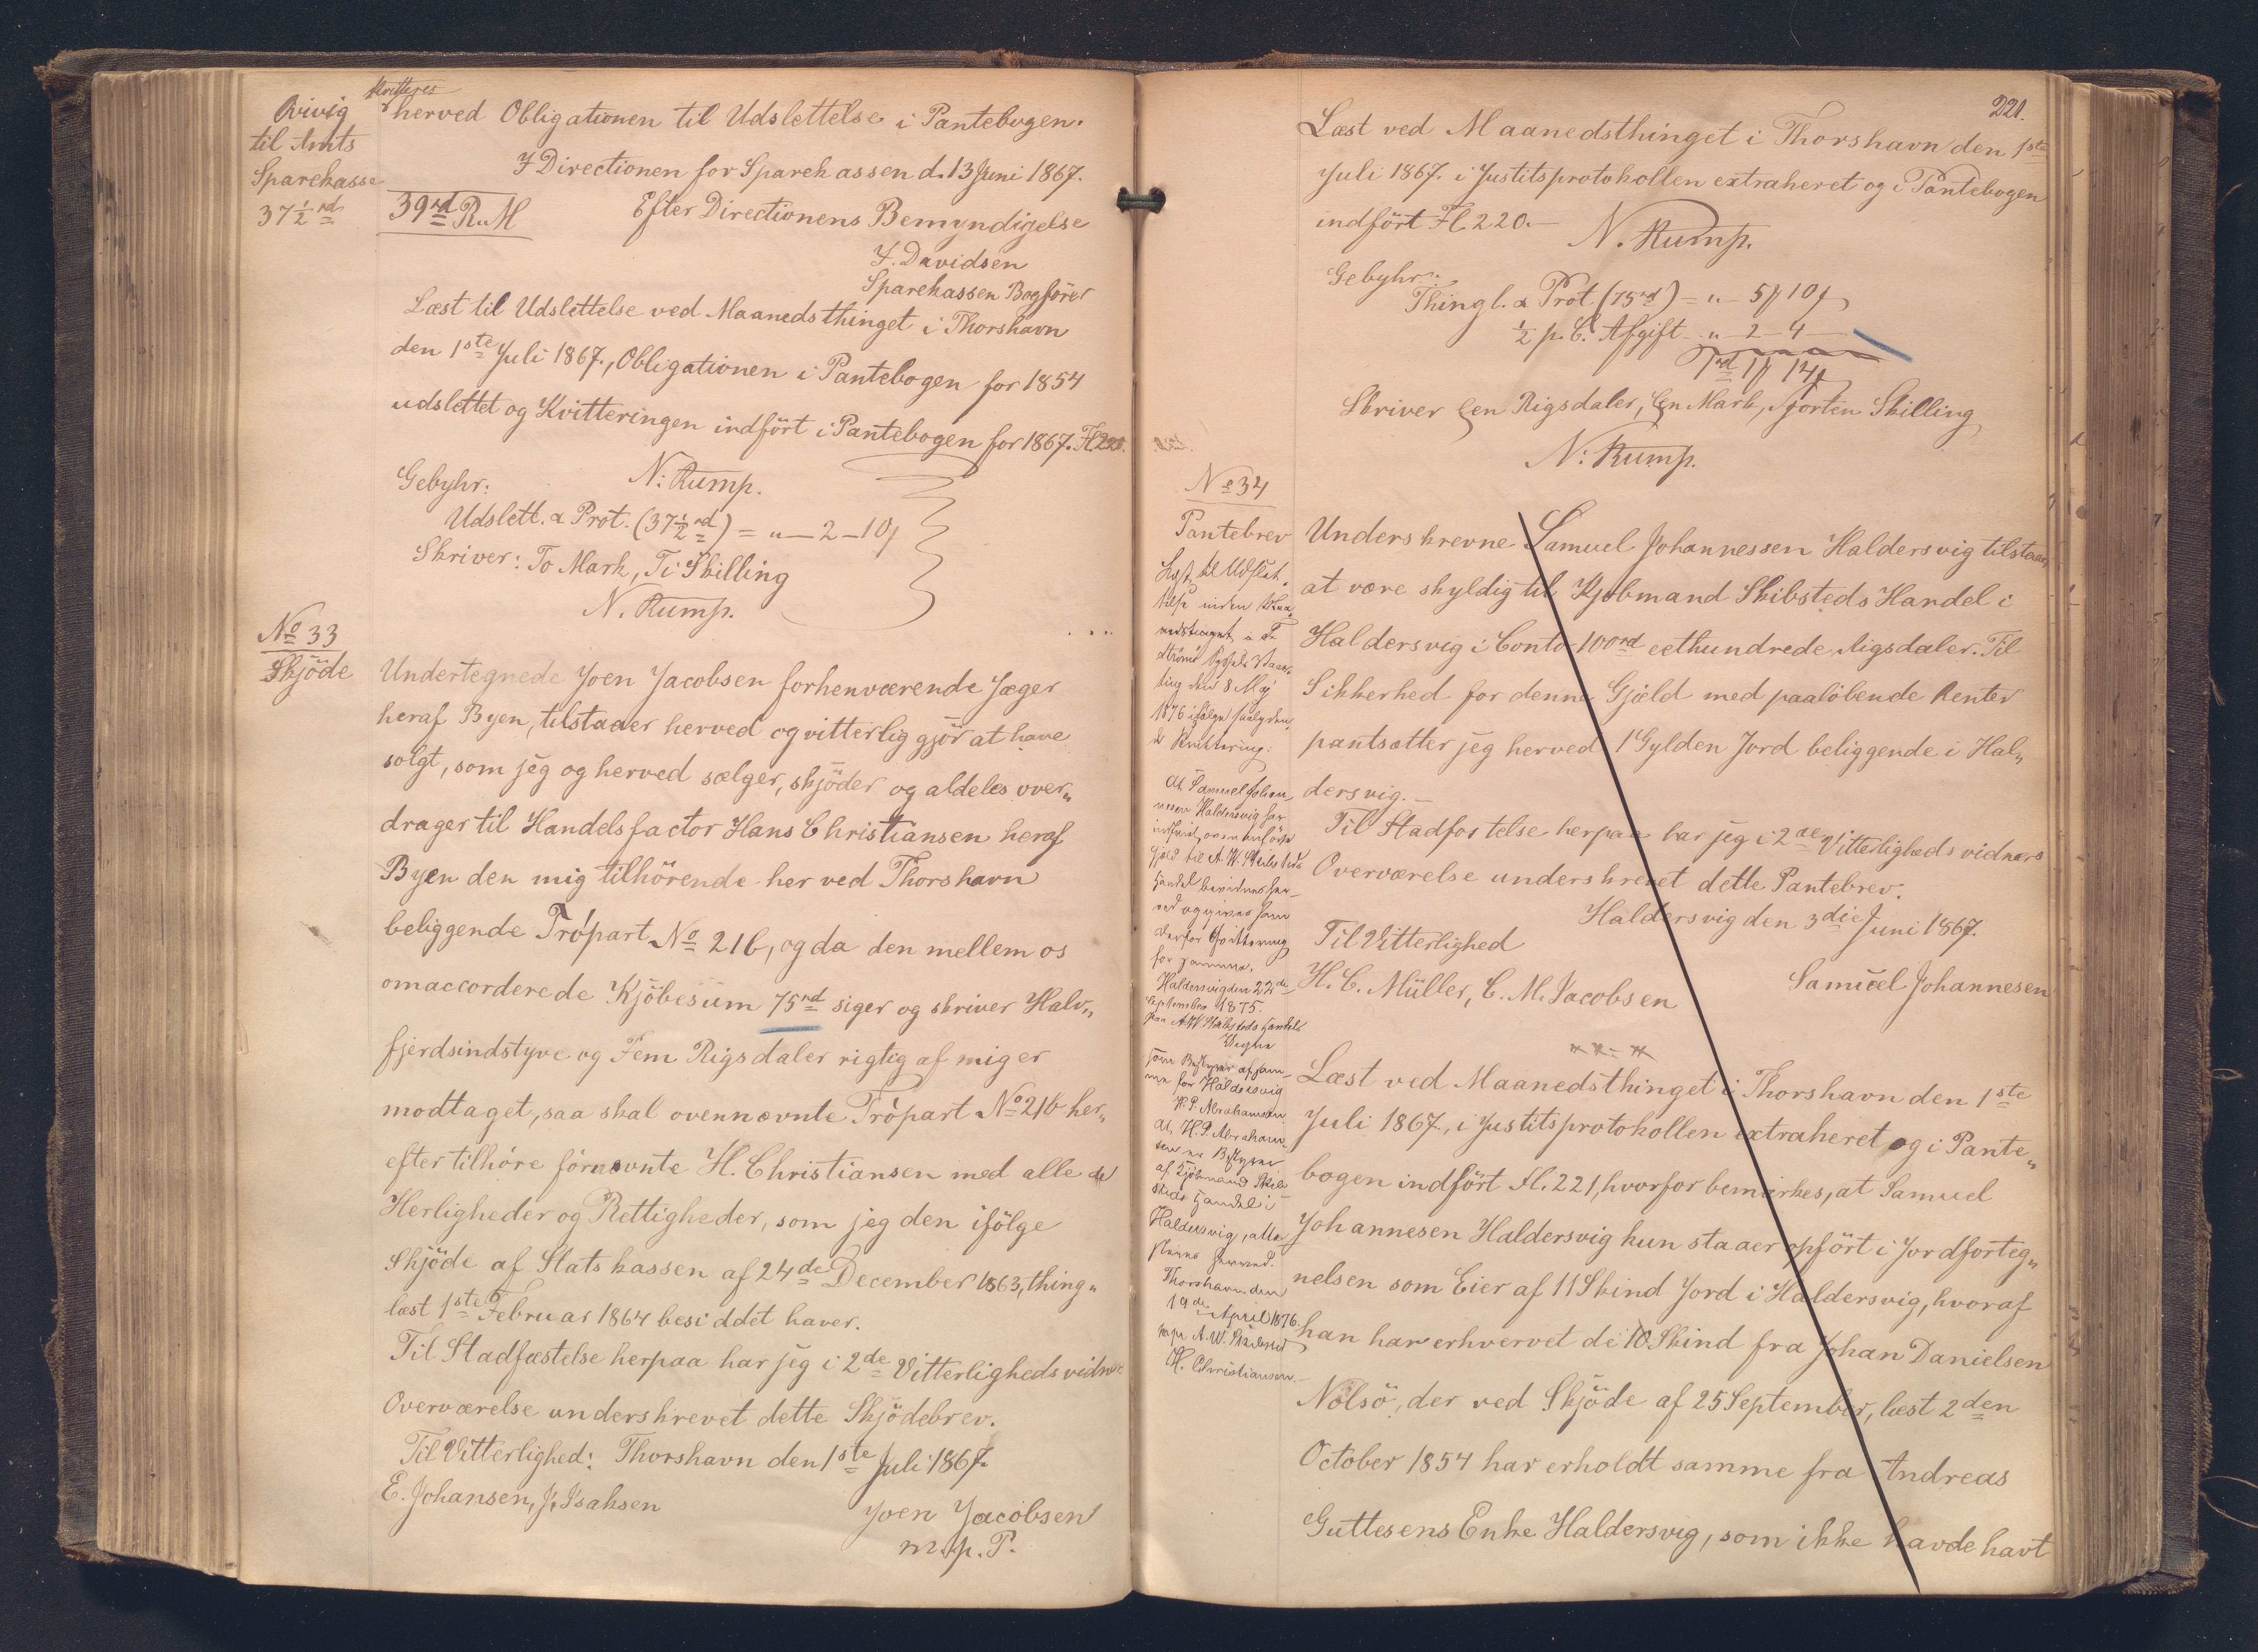 Qvivig
til Amts
Sparekasse
37½ rd
kvitteres
herved Obligationen til Udslettelse i Pantebogen.
I Directionen for Sparekassen d. 13 Juni 1867.
39 rd R.M
Efter Directionens Bemyndigelse
J. Davidsen
Sparekassen Bogfører
Læst til Udslettelse ved Maanedsthinget i Thorshavn
den 1ste Juli 1867, Obligationen i Pantebogen for 1854
udslettet og Kvitteringen indfört i Pantebogen for 1867. Fl 220.
N. Rump.
Gebyhr:
Udslett. & Prot. (37½ rd) = " — 2 — 10ſ
Skriver: To Mark, Ti Skilling
N. Rump.
No 33
Skjöde
Undertegnede Joen Jacobsen forhenværende Jæger
heraf Byen, tilstaaer herved og vitterlig gjör at have
solgt, som jeg og herved sælger, skjöder og aldeles over„
drager til Handelsfactor Hans Christiansen heraf
Byen den mig tilhörende her ved Thorshavn
beliggende Tröpart No 216, og da den mellem os
omaccorderede Kjöbesum 75 rd siger og skriver Halv„
fjerdsindstyve og Fem Rigsdaler rigtig af mig er
modtaget, saa skal ovennævnte Tröpart No 216 her„
efter tilhöre förnævnte H. Christiansen med alle de
Herligheder og Rettigheder, som jeg den ifölge
Skjöde af Statskassen af 24de December 1863, thing„
læst 1ste Februar 1864 besiddet haver.
Til Stadfæstelse herpaa har jeg i 2de Vitterligheds vidne
Overværelse underskrevet dette Skjödebrev.
Til Vitterlighed: Thorshavn den 1ste Juli 1867.
E. Johansen, J. Isaksen
Joen Jacobsen
m. p. P.
221.
Læst ved Maanedsthinget i Thorshavn den 1ste
Juli 1867. i Justitsprotokollen extraheret og i Pantebogen
indfört Fl. 220.—
N. Rump.
Gebyhr:
Thingl. & Prot. (75 rd) = " — 5 ꝟ 10 ſ
½ p. C. Afgift " — 2 — 4 —
1 rd 1 ꝟ 14 ſ
Skriver Een Rigsdaler, Een Mark, Fjorten Skilling
N. Rump.
No 34
Pantebrev
Læst til Udslet„
telse inden Maa„
nedstinget i
Strömö Syssels Vaar„
ting den 8 Maj
1876 ifölge saalyden„
de Kvittering:
At Samuel Johan„
nesen Haldersvig har
indfriet ovenanförte
Gjæld til A. W. Skibsteds
Handel bevidnes her„
ved og gives ham
derfor Qvittering
for samme.
Haldersvig den 22de
September 1875.
paa A. W. Skibsteds Handels
Vegne
som Bestyrer af sam„
me for Haldersvig
H. P. Abrahamsen
At H. P. Abraham„
sen er Bestyrer
af Kjöbmand Skib„
steds Handel i
Haldersvig, atte„
steres herved.
Thorshavn den
19de April 1876.
mpr A. W. Skibsted
H. Christiansen
Underskrevne Samuel Johannessen Haldersvig tilstaar
at være skyldig til Kjöbmand Skibsteds Handel i
Haldersvig i Conto 100 rd eethundrede Rigsdaler. Til
Sikkerhed for denne Gjæld med paalöbende Renter
pantsætter jeg herved 1 Gylden Jord beliggende i Hal„
dersvig.—
Til Stadfæstelse herpaa har jeg i 2de Vitterligheds vidners
Overværelse underskrevet dette Pantebrev.
Haldersvig den 3die Juni 1867.
Til Vitterlighed
Samuel Johannesen
H. C. Müller, C. M. Jacobsen
Læst ved Maanedsthinget i Thorshavn den 1ste
Juli 1867, i Justitsprotokollen extraheret og i Pante„
bogen indfört Fl. 221, hvorfor bemærkes, at Samuel
Johannesen Haldersvig kun staaer opfört i Jordforteg„
nelsen som Eier af 11 Skind Jord i Haldersvig, hvoraf
han har erhvervet de 10 Skind fra Johan Danielsen
Nolsö, der ved Skjöde af 25 September, læst 2den
October 1854 har erholdt samme fra Andreas
Guttesens Enke Haldersvig, som ikke havde havt